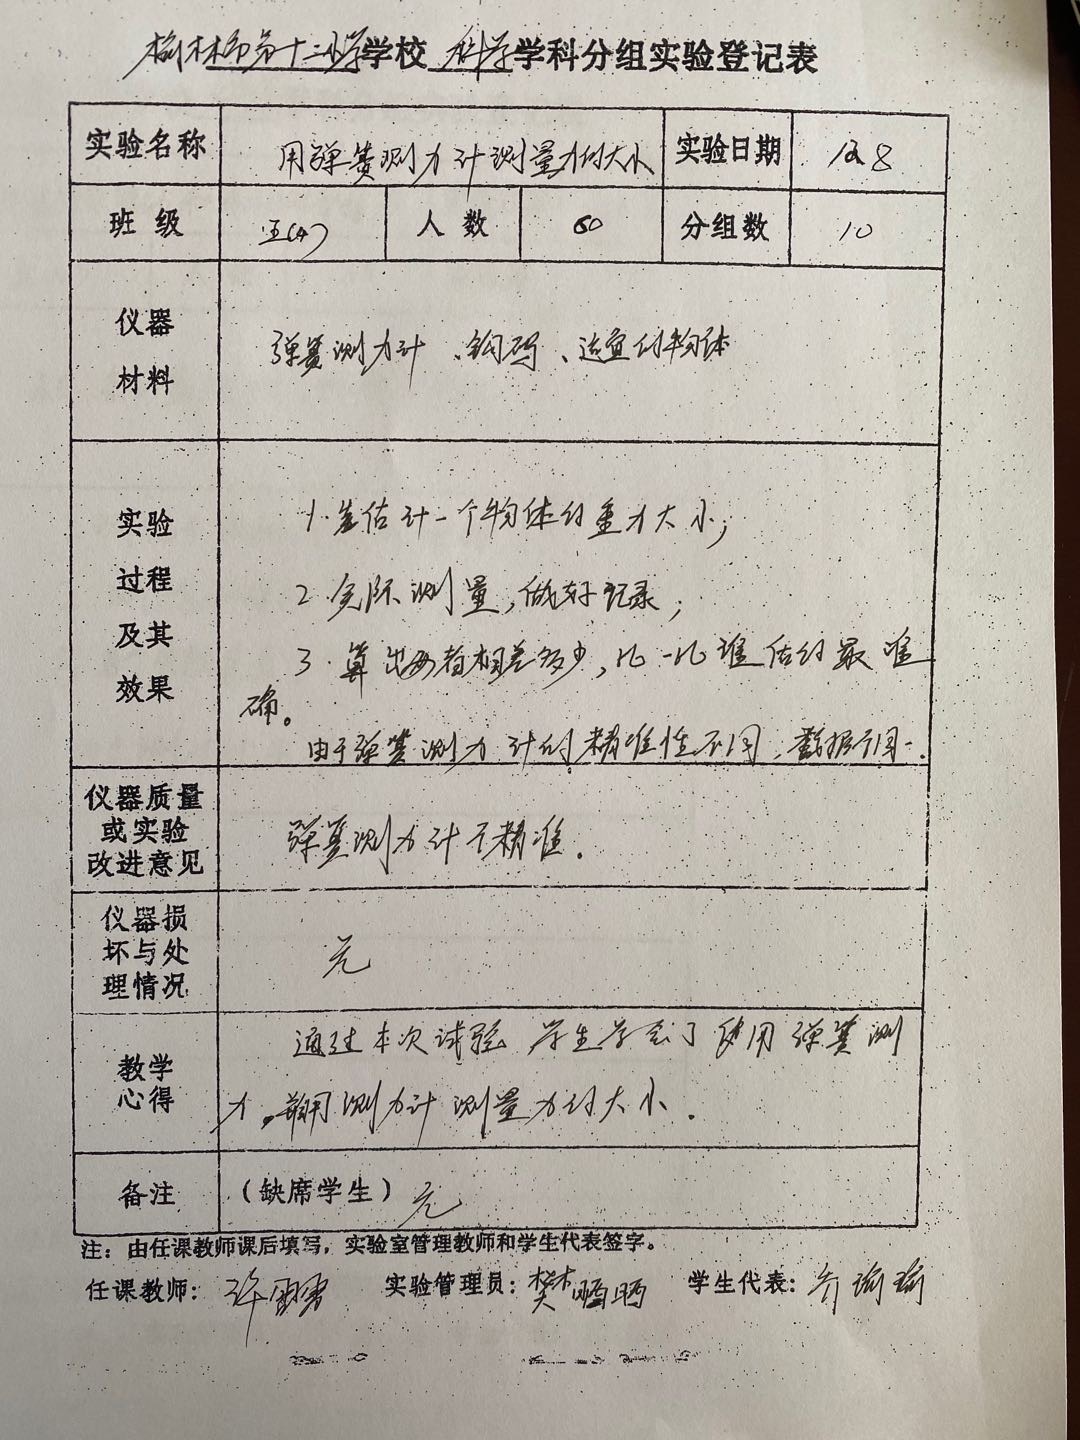 榆林市第十二小学学校 科学学科分组实验登记表
实验名称 用弹簧测力计测量力的大小 实验日期 12.8
班级 五(4) 人数 60 分组数 10
仪器材料 弹簧测力计、钩码、适宜的物体
实验过程及其效果
1.先估计一个物体的重力大小;
2.实际测量,做好记录;
3.算出两者相差多少,比一比谁估的最准
确。
由于弹簧测力计的精准性不同,数据不同一.
仪器质量或实验改进意见 弹簧测力计不精准.
仪器损坏与处理情况 无
教学心得 通过本次试验 学生学会了使用弹簧测
力,并用测力计测量力的大小.
备注 (缺席学生) 无
注:由任课教师课后填写,实验室管理教师和学生代表签字。
任课教师: 许 实验管理员: 樊 学生代表: